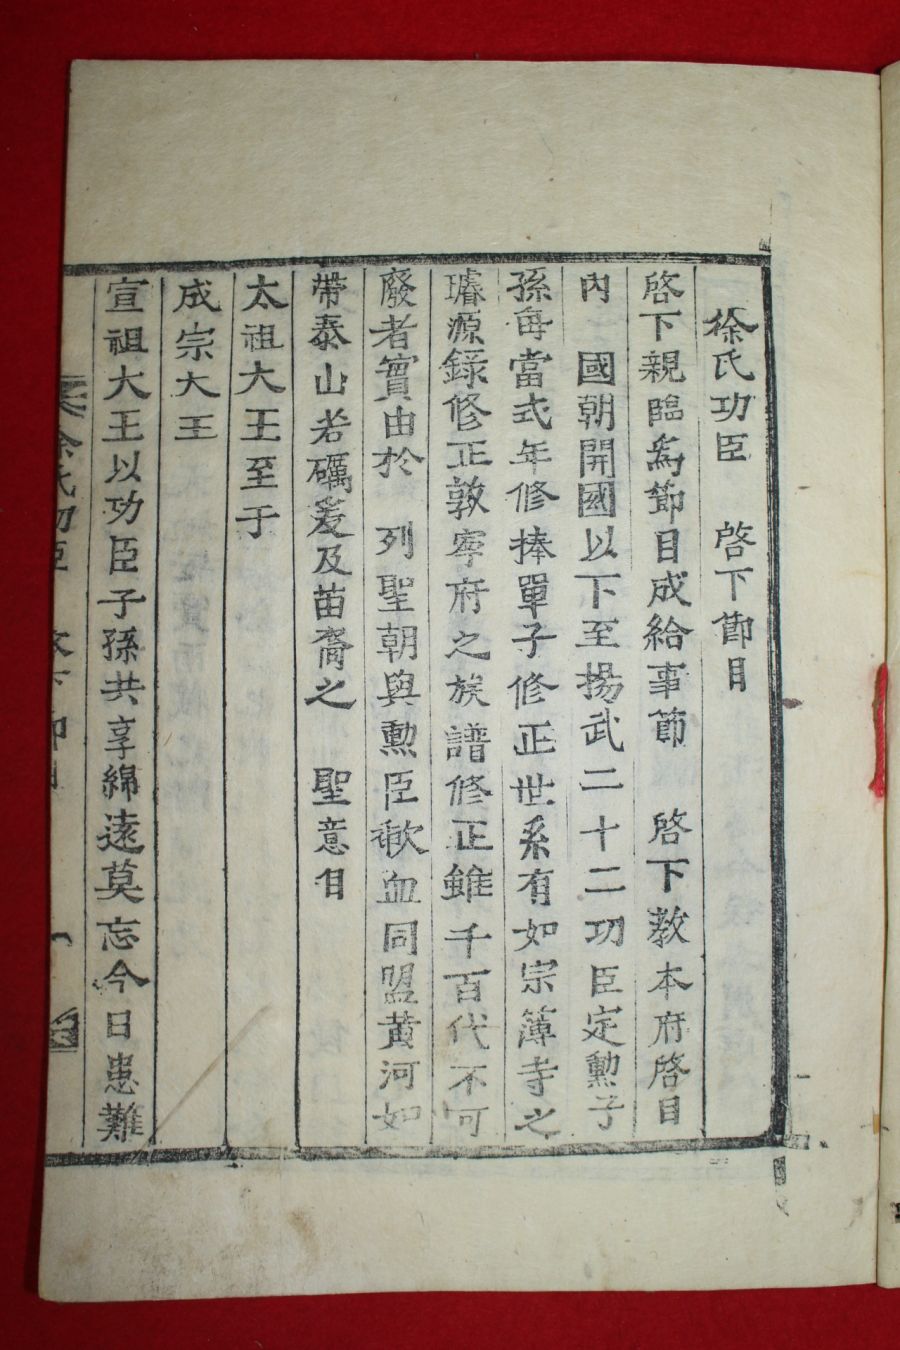 徐氏功臣　啓下節目
啓下親臨爲節目成給事節　啓下教本府啓目
內　國朝開國以下至揚武二十二功臣定勳子
孫每當式年修捧單子修正世系有如宗簿寺之
璿源錄修正敦寧府之族譜修正雖千百代不可
廢者實由於　列聖朝與勳臣歃血同盟黃河如
帶泰山若礪爰及苗裔之　聖意
太祖大王至于
成宗大王
宣祖大王以功臣子孫共享綿遠莫忘今日患難
徐氏功臣　啓下節目　一